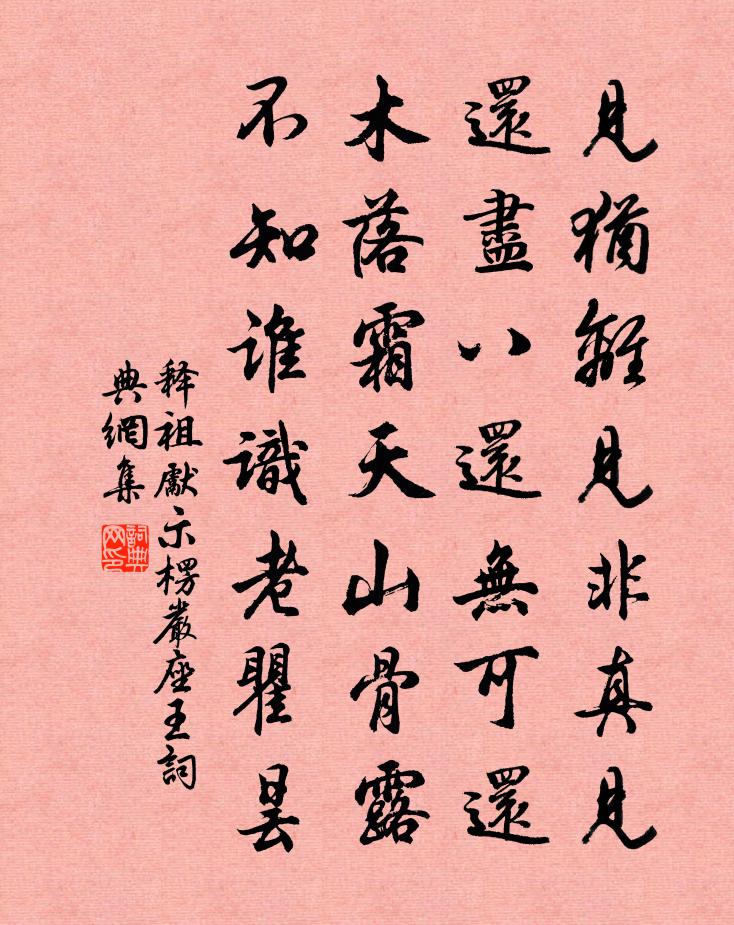 見猶離見非真見
還盡八還無可還
木落霜天山骨露
不知誰識老瞿曇
释祖獻示楞嚴座王詞
典網集
詞典
网印